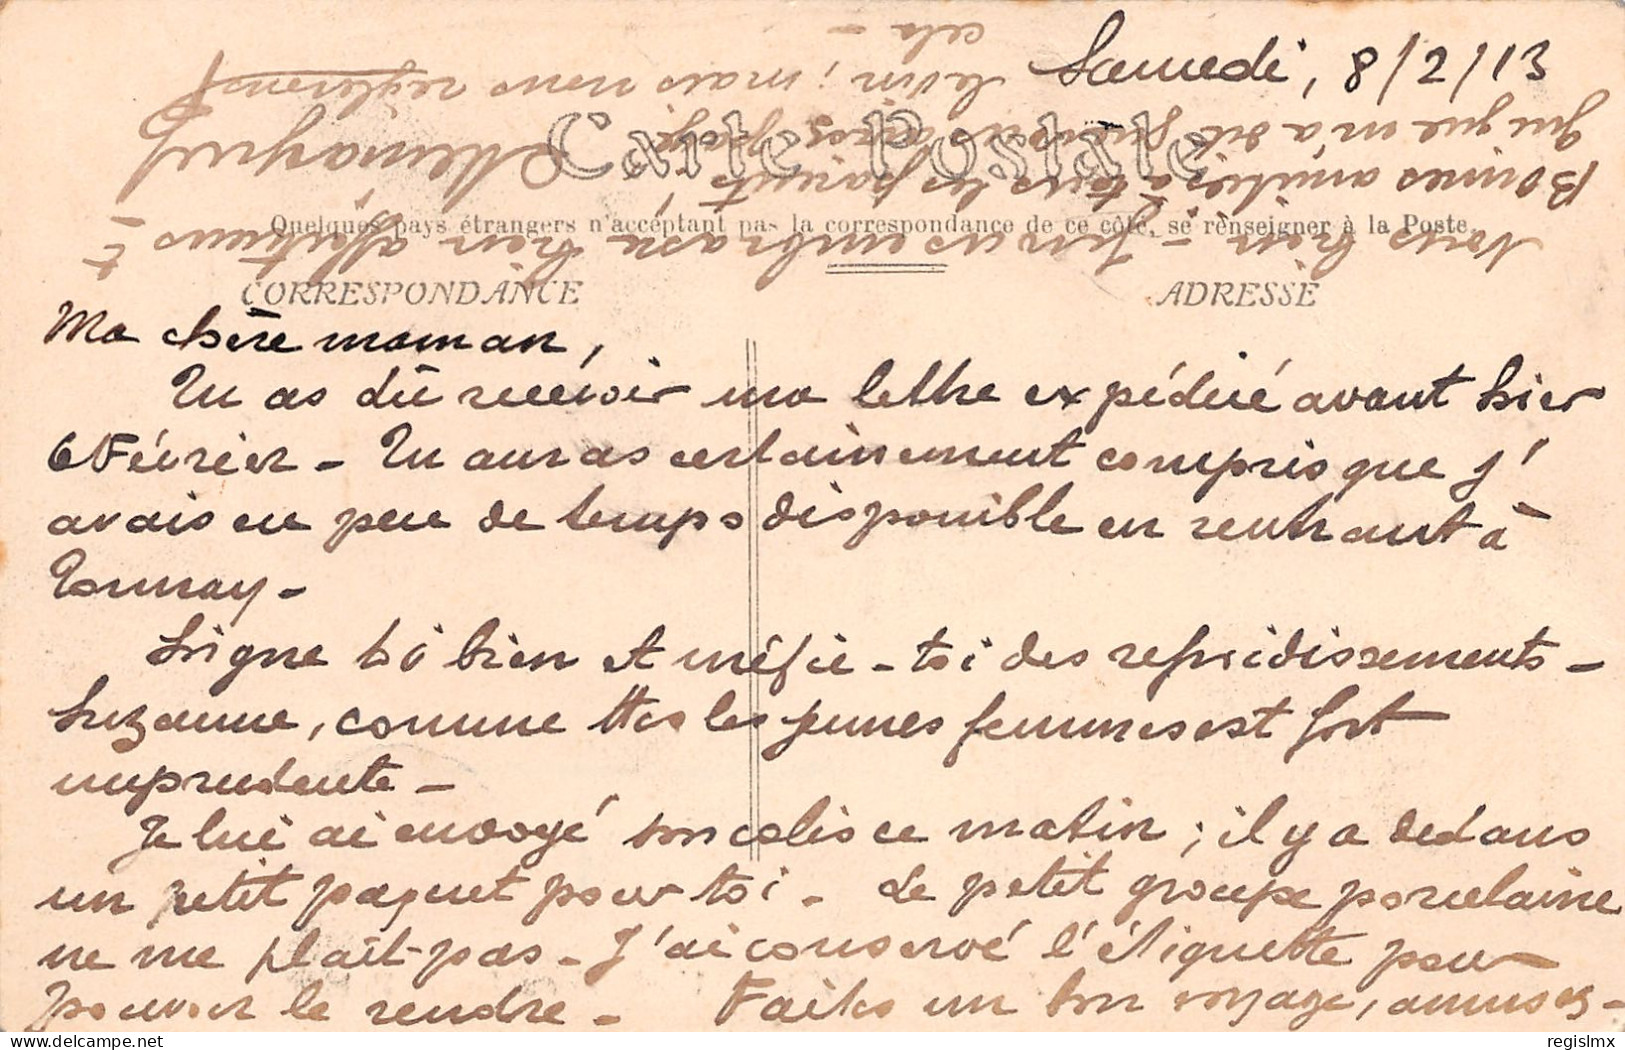 Samedi, 8/2/13
Carte Postale
Quelques pays étrangers n'acceptant pas la correspondance de ce côté, se renseigner à la Poste
CORRESPONDANCE
ADRESSE
Ma chère maman,
Tu as dû recevoir ma lettre expédiée avant hier
6 Février - Tu auras certainement compris que j'
avais eu peu de temps disponible en rentrant à
Tournay -
Soigne toi bien et méfie-toi des refroidissements -
Suzanne, comme ttes les jeunes femmes est fort
imprudente -
Je lui ai envoyé son colis ce matin ; il y a dedans
un petit paquet pour toi - Le petit groupe porcelaine
ne me plaît pas - J'ai conservé l'étiquette pour
pouvoir le rendre - Faites un bon voyage, amusez-
vous bien - Je vous embrasse bien bien affectueus t
Bonnes amitiés à tous les parents
Guy que m'a dit
le vin ; mais nous règlerons
cela -
delcampe.net
regislmx